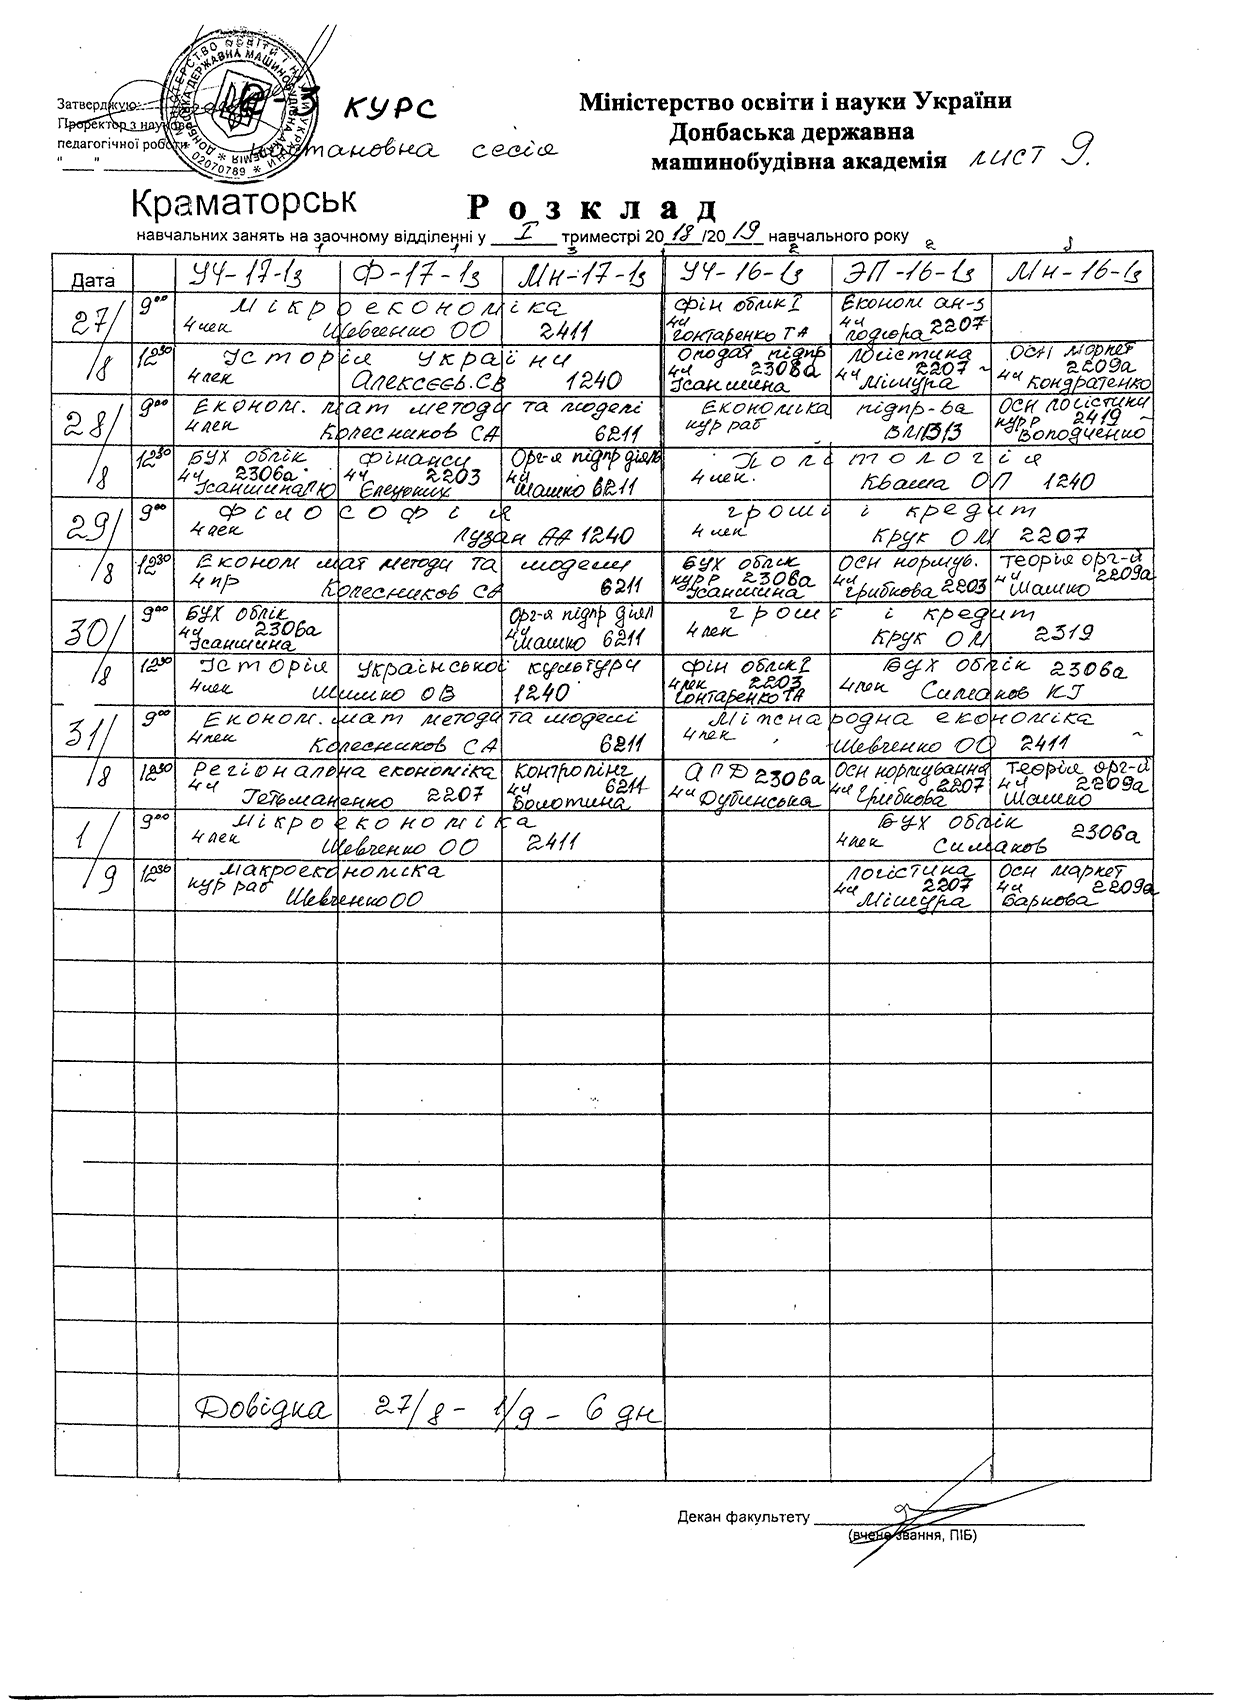 2-3 курс
Затверджую:
Проректор з науково
педагогічної роботи
Установна сесія
Міністерство освіти і науки України
Донбаська державна
машинобудівна академія лист 9.
Краматорськ
Розклад
навчальних занять на заочному відділенні у I триместрі 2018/2019 навчального року
Дата УЧ-17-1з Ф-17-1з Мн-17-1з УЧ-16-1з ЭП-16-1з Мн-16-1з
27/8 9⁰⁰ Мікроекономіка Фін облік I Економ ан-з
4 лек Шевченко ОО 2411 4ч Гонтаренко ТА 4ч Подгора 2207
12³⁰ Історія України Оподат підпр Логістика Осн маркет
4 лек Алексєєв.СВ 1240 4ч 2306а Ісаншина 4ч 2207 Мішура 4ч 2209а Кондратенко
28/8 9⁰⁰ Економ. мат методи та моделі Економіка підпр-ва Осн логістики
4 лек Колесников СА 6211 кур раб кур р 2419 Володченко
12³⁰ Бух облік Фінанси Орг-я підпр діяль Політологія
4ч 2306а Ісаншина ГЮ 4ч 2203 Елецких 4ч Шашко 6211 4 лек. Кваша ОП 1240
29/8 9⁰⁰ Філософія Гроші і кредит
4 лек Лузан АА 1240 4 лек Крук ОМ 2207
12³⁰ Економ мат методи та моделі Бух облік Осн нормув. Теорія орг-й
4 пр Колесников СА 6211 кур р 2306а Ісаншина 4ч Грибкова 2203 4ч 2209а Шашко
30/8 9⁰⁰ Бух облік Орг-я підпр діял Гроші і кредит
4ч 2306а Ісаншина 4ч Шашко 6211 4 лек Крук ОМ 2319
12³⁰ Історія української культури Фін облік I Бух облік 2306а
4 лек Шимко ОВ 1240 4 лек 2203 Гонтаренко ТА 4 лек Симаков КІ
31/8 9⁰⁰ Економ. мат методи та моделі Міжнародна економіка
4 лек Колесников СА 6211 4 лек Шевченко ОО 2411
12³⁰ Регіональна економіка Контролінг АГД 2306а Осн нормування Теорія орг-й
4ч Гетьманенко 2207 4ч 6211 Болотина 4ч Дубинська 4ч 2207 Грибкова 4ч 2209а Шашко
1/9 9⁰⁰ Мікроекономіка Бух облік 2306а
4 лек Шевченко ОО 2411 4 лек Симаков
12³⁰ Макроекономіка Логістика Осн маркет
кур раб Шевченко ОО 4ч 2207 Мішура 4ч 2209а Баркова
Довідка 27/8 - 1/9 - 6 дн
Декан факультету
(вчене звання, ПІБ)